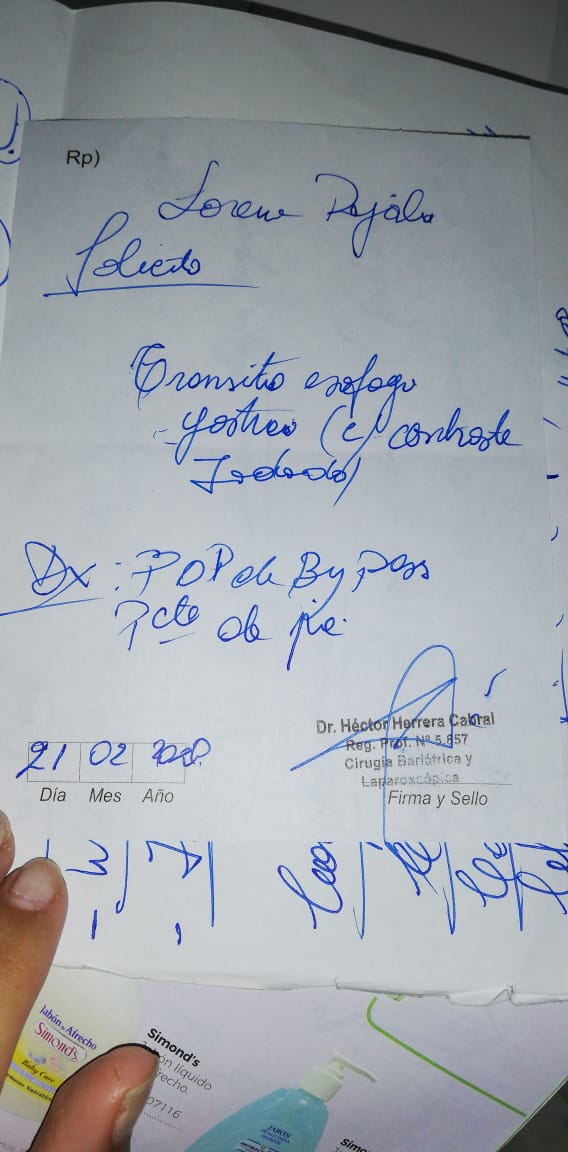 Rp)
Lorena
Solicito
Transito esofago
-gastrico (c/ contraste
Iodado)
Dx: POP de By pass
Pcte de pie.
21 02 2020.
Día Mes Año
Dr. Héctor Herrera Cabral
Reg. Prof. Nº 5.857
Cirugía Bariátrica y
Laparoscópica
Firma y Sello
Jabón de Afrecho
Simond's
Baby Care
Simond's
Jabón líquido
Afrecho.
07116
JABON
Simo